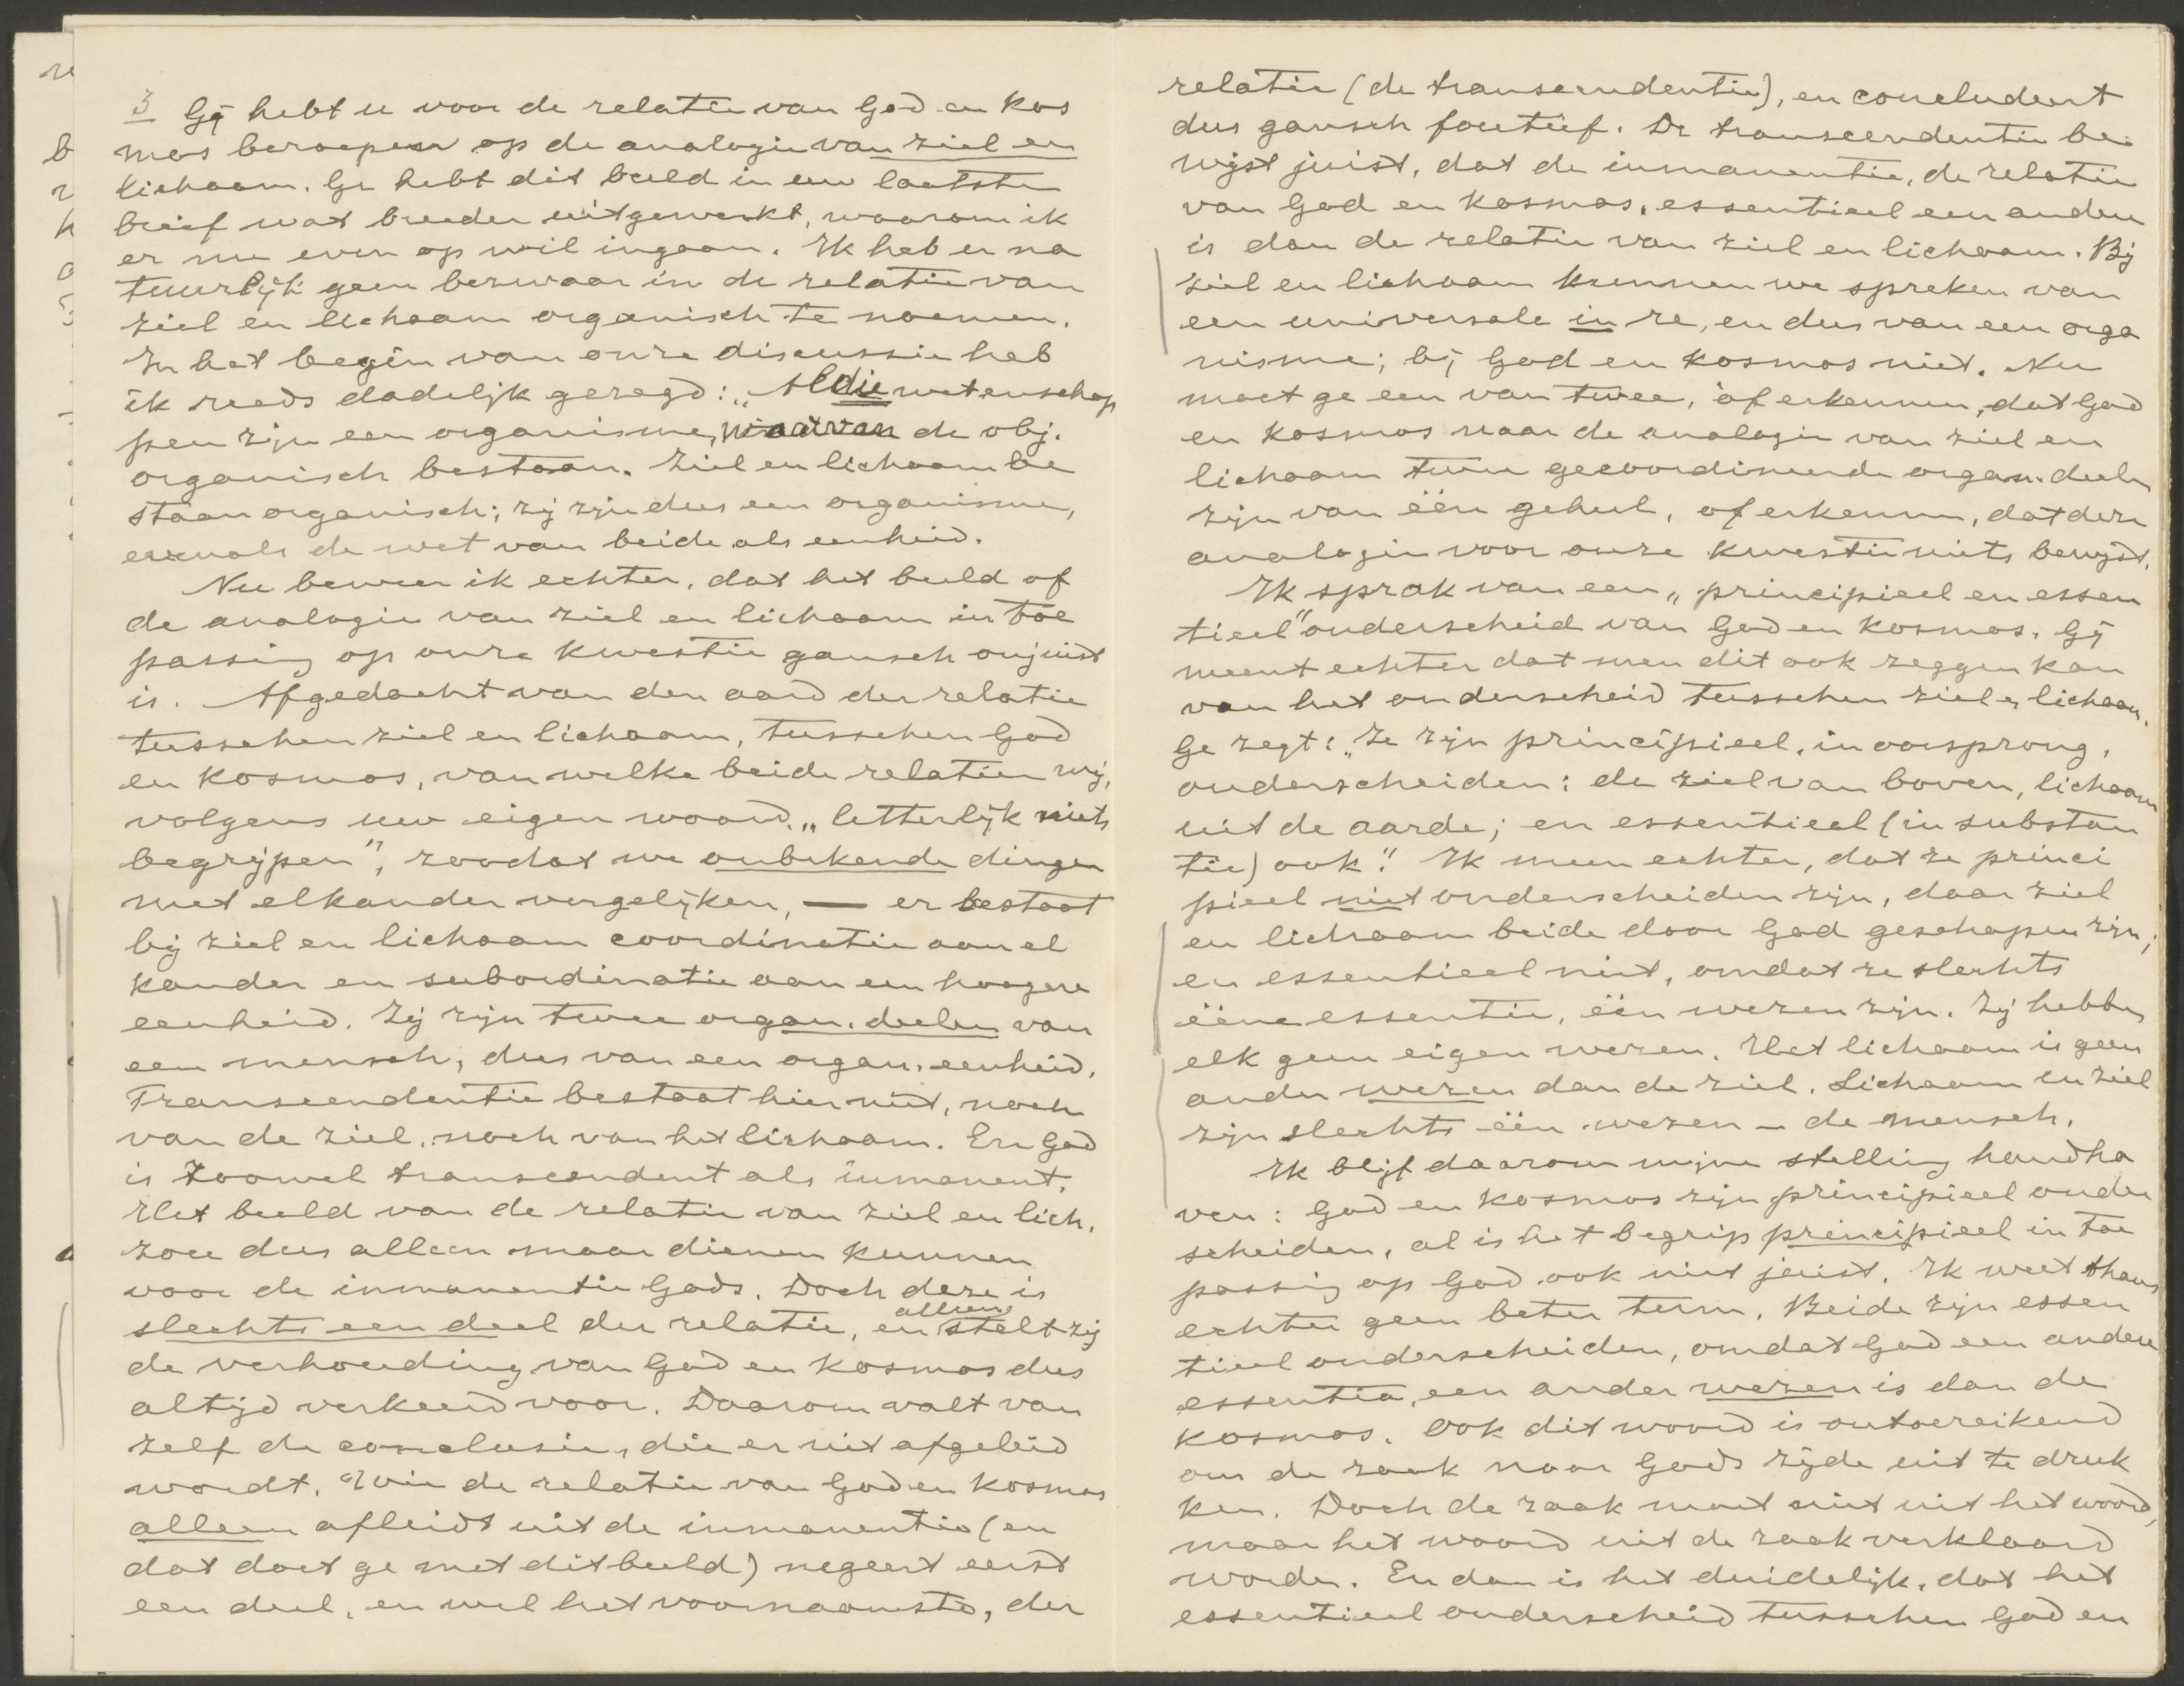 3 Gij hebt u voor de relatie van God en kos
mos beroepen op de analogie van ziel en
lichaam. Ge hebt dit beeld in uw laatste
brief wat breeder uitgewerkt, waarom ik
er nu even op wil ingaan. Ik heb er na
tuurlijk geen bezwaar in de relatie van
ziel en lichaam organisch te noemen.
In het begin van onze discussie heb
ik reeds dadelijk gezegd: „Al die wetenschap
pen zijn een organisme, waarvan de obj.
organisch bestaan. Ziel en lichaam be
staan organisch; zij zijn dus een organisme,
evenals de wet van beide als eenheid.
Nu beweer ik echter, dat het beeld of
de analogie van ziel en lichaam in toe
passing op onze kwestie gansch onjuist
is. Afgedacht van den aard der relatie
tusschen ziel en lichaam, tusschen God
en kosmos, van welke beide relatien wij,
volgens uw eigen woord, „letterlijk niets
begrijpen", zoodat we onbekende dingen
met elkander vergelijken, — er bestaat
bij ziel en lichaam coordinatie aan el
kander en subordinatie aan een hoogere
eenheid. Zij zijn twee organ. deelen van
een mensch, dus van een organ. eenheid.
Transcendentie bestaat hier niet, noch
van de ziel, noch van het lichaam. En God
is zoowel transcendent als immanent.
Het beeld van de relatie van ziel en lich.
zou dus alleen maar dienen kunnen
voor de immanentie Gods. Doch deze is
slechts een deel der relatie, en alleen stelt zij
de verhouding van God en kosmos dus
altijd verkeerd voor. Daarom valt van
zelf de conclusie, die er uit afgeleid
wordt. Wie de relatie van God en kosmos
alleen afleidt uit de immanentie (en
dat doet ge met dit beeld) negeert eerst
een deel, en wel het voornaamste, der
relatie (de transcendentie), en concludeert
dus gansch foutief. De transcendentie be
wijst juist, dat de immanentie, de relatie
van God en kosmos, essentieel een andere
is dan de relatie van ziel en lichaam. Bij
ziel en lichaam kunnen we spreken van
een universale in re, en dus van een orga
nisme; bij God en kosmos niet. Nu
moet ge een van twee, òf erkennen, dat God
en kosmos naar de analogie van ziel en
lichaam twee gecoordineerde organ. deelen
zijn van één geheel, of erkennen, dat deze
analogie voor onze kwestie niets bewijst.
Ik sprak van een „principieel en essen
tieel" onderscheid van God en kosmos. Gij
meent echter dat men dit ook zeggen kan
van het onderscheid tusschen ziel en lichaam.
Ge zegt: „Ze zijn principieel, in oorsprong,
onderscheiden: de ziel van boven, lichaam
uit de aarde; en essentieel (in substan
tie) ook." Ik meen echter, dat ze princi
pieel niet onderscheiden zijn, daar ziel
en lichaam beide door God geschapen zijn;
en essentieel niet, omdat ze slechts
ééne essentie, één wezen zijn. Zij hebben
elk geen eigen wezen. Het lichaam is geen
ander wezen dan de ziel. Lichaam en ziel
zijn slechts één wezen – de mensch.
Ik blijf daarom mijne stelling handha
ven: God en kosmos zijn principieel onder
scheiden, al is het begrip principieel in toe
passing op God ook niet juist. Ik weet thans
echter geen beter term. Beide zijn essen
tieel onderscheiden, omdat God een andere
essentia, een ander wezen is dan de
kosmos. Ook dit woord is ontoereikend
om de zaak naar Gods zijde uit te druk
ken. Doch de zaak moet niet uit het woord,
maar het woord uit de zaak verklaard
worden. En dan is het duidelijk, dat het
essentieel onderscheid tusschen God en